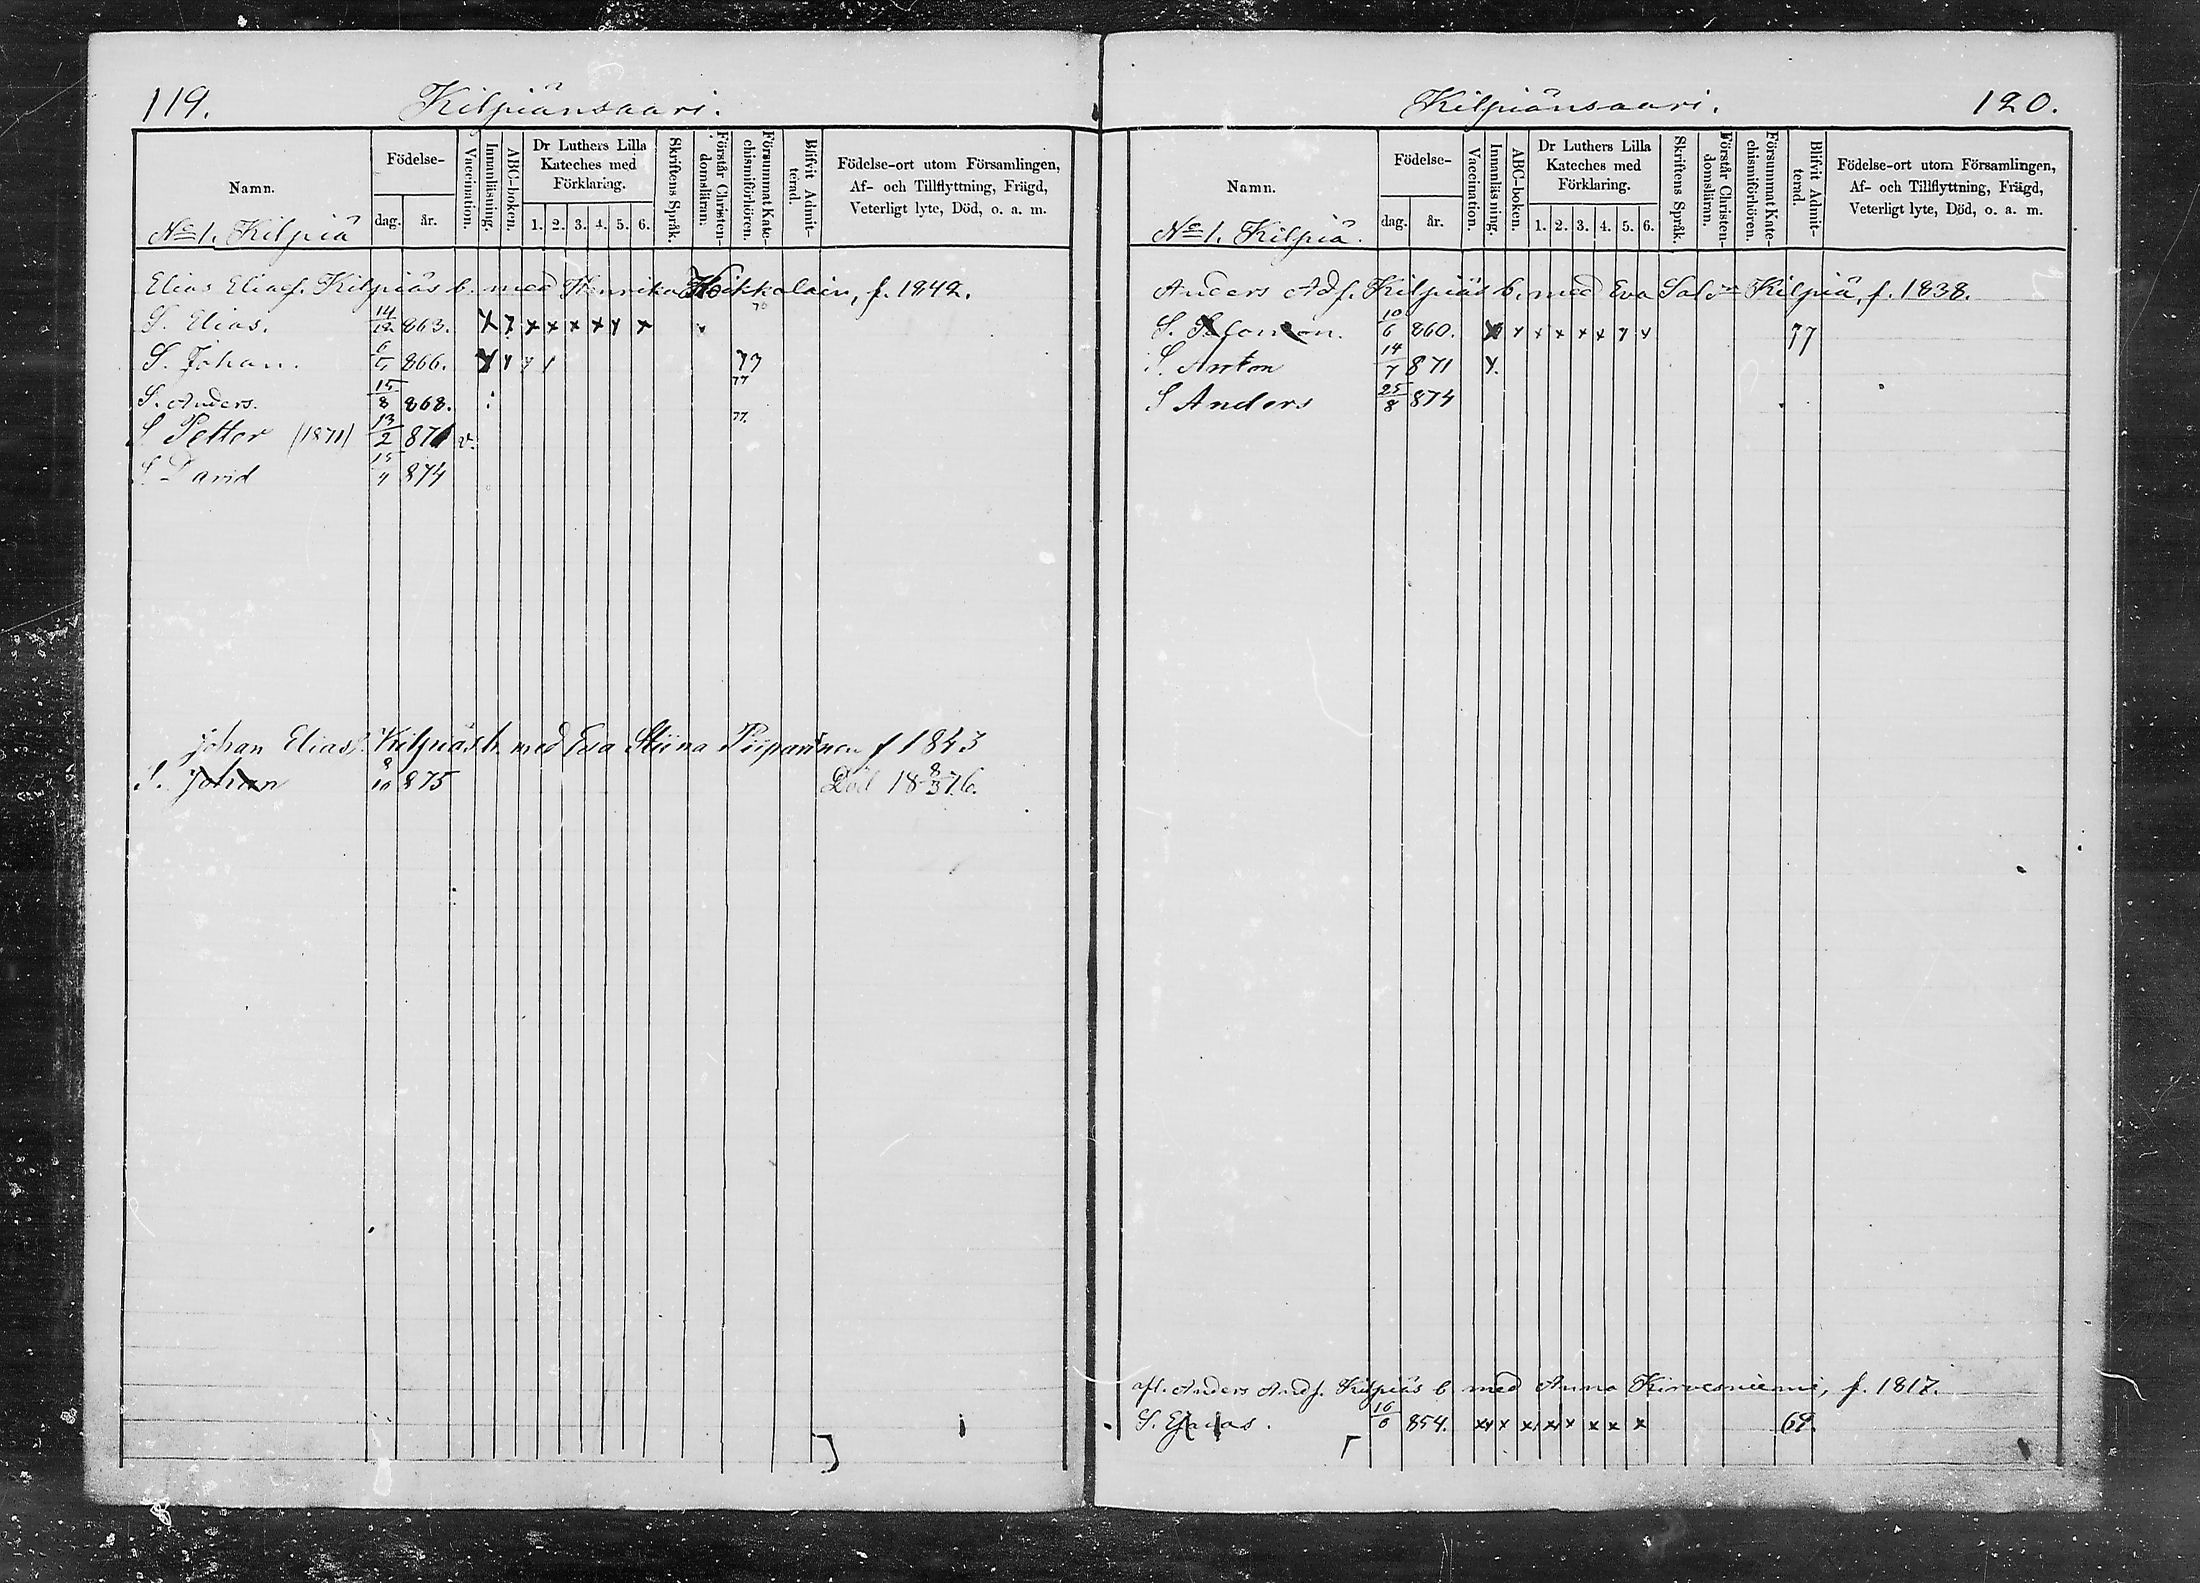 119.
Kilpiänsaari.
Namn.
Födelse-
dag. år.
Vaccination.
Innanläsning.
ABC-boken.
Dr Luthers Lilla Kateches med Förklaring.
1. 2. 3. 4. 5. 6.
Skriftens Språk.
Förstår Christen-domsläran.
Försummat Kate-chismiförhören.
Blifvit Admit-terad.
Födelse-ort utom Församlingen,
Af- och Tillflyttning, Frägd,
Veterligt lyte, Död, o. a. m.
No 1. Kilpiä
Elias Eliaf. Kilpiäs b. med Henrika Heikkalain, f. 1842.
S. Elias. 14/12 863. x x x x x x x x
S. Johan. 866. 77
S. Anders. 15/8 868. 77
S Petter (1871) 13/2 871 v. 77.
S David 15/4 874
Johan Eliasf. Kilpiäs b. med Eva Stiina Piipariinen f 1843
S. Johan 8/10 875 Död 18 8/3 76.
Kilpiänsaari.
120.
Namn.
Födelse-
dag. år.
Vaccination.
Innanläsning.
ABC-boken.
Dr Luthers Lilla Kateches med Förklaring.
1. 2. 3. 4. 5. 6.
Skriftens Språk.
Förstår Christen-domsläran.
Försummat Kate-chismiförhören.
Blifvit Admit-terad.
Födelse-ort utom Församlingen,
Af- och Tillflyttning, Frägd,
Veterligt lyte, Död, o. a. m.
No 1. Kilpiä.
Anders Adf. Kilpiäs b. med Eva Sal. Kilpiä, f. 1838.
S. Salomon. 10/6 860. x x x x x x x x 77
S. Anton 14/7 871 x.
S Anders 25/8 874
afl. Anders Andf. Kilpiäs b med Anna Kirvesniemi, f. 1817.
S. 16/6 854. x x x x x x x x 69.